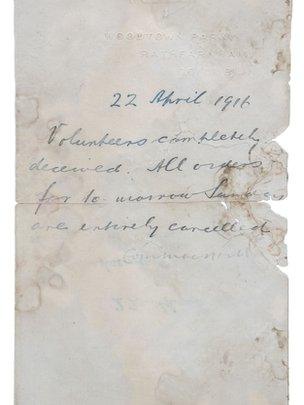 WOODTOWN PARK
RATHFARNHAM
22 April 1916
Volunteers completely
deceived. All orders
for to-morrow Sunday
are entirely cancelled